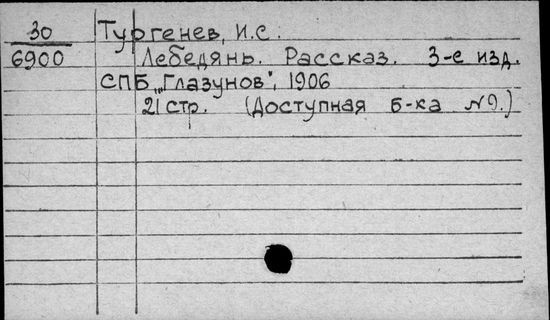 30 Тургенев, И.С.
6900 Лебедянь. Рассказ. 3-е изд.
СПБ „Глазунов", 1906
21 стр. (Доступная б-ка №9.)